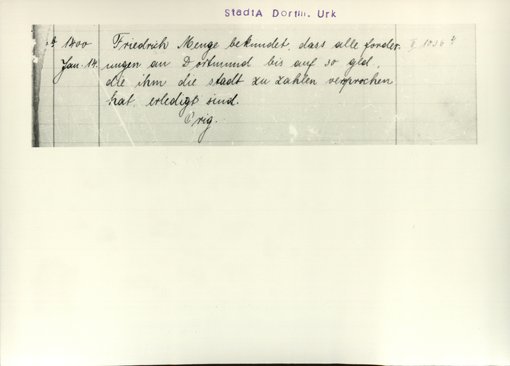 StadtA Dortm. Urk
1400 Friedrich Menge bekundet, dass alle forder-
Jan. 14. ungen an Dortmund bis auf 30 gld,
die ihm die stadt zu zahlen versprochen
hat, erledigt sind.
Orig.